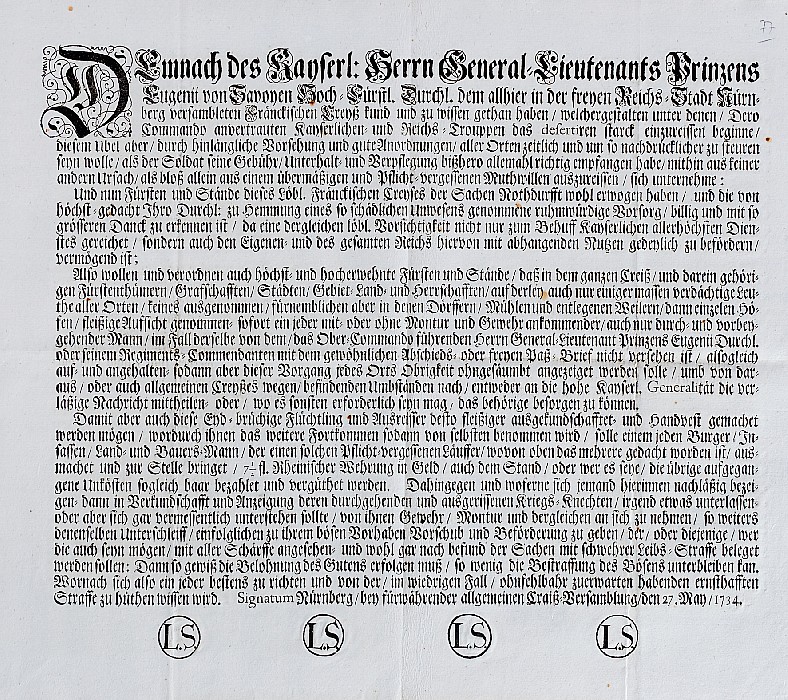 77
DEmnach des Kayserl: Herrn General-Lieutenants Prinzens
Eugenii von Savoyen Hoch-Fürstl. Durchl. dem allhier in der freyen Reichs-Stadt Nürn-
berg versambleten Fränckischen Creyß kund und zu wissen gethan haben / welchergestalten unter denen / Dero
Commando anvertrauten Kayserlichen- und Reichs-Trouppen das desertiren starck einzureissen beginne /
diesem Ubel aber / durch hinlängliche Vorsehung und gute Anordnungen / aller Orten zeitlich und um so nachdrücklicher zu steuren
seyn wolle / als der Soldat seine Gebühr / Unterhalt- und Verpflegung bißhero allemahl richtig empfangen habe / mithin aus keiner
andern Ursach / als bloß allein aus einem übermäßigen und Pflicht-vergessenen Muthwillen auszureissen / sich unternehme:
Und nun Fürsten und Stände dieses Löbl. Fränckischen Creyses der Sachen Nothdurfft wohl erwogen haben / und die von
höchst-gedacht Ihro Durchl: zu Hemmung eines so schädlichen Unwesens genommene ruhmwürdige Vorsorg / billig und mit so
grösseren Danck zu erkennen ist / da eine dergleichen löbl. Vorsichtigkeit nicht nur zum Behuff Kayserlichen allerhöchsten Dien-
stes gereichet / sondern auch den Eigenen- und des gesamten Reichs hiervon mit abhangenden Nutzen gedeylich zu befördern /
vermögend ist;
Also wollen und verordnen auch höchst- und hocherwehnte Fürsten und Stände / daß in dem ganzen Creiß / und darein gehöri-
gen Fürstenthümern / Grafschafften / Städten / Gebiet-Land- und Herrschafften / auf derley auch nur einiger massen verdächtige Leu-
the aller Orten / keines ausgenommen / fürnemblichen aber in denen Dörffern / Mühlen und entlegenen Weilern / dann einzelen Hö-
fen / fleißige Aufsicht genommen- sofort ein jeder mit- oder ohne Montur und Gewehr ankommender / auch nur durch- und vorbey-
gehender Mann / im Fall derselbe von dem / das Ober-Commando führenden Herrn General-Lieutenant Prinzens Eugenii Durchl.
oder seinem Regiments-Commendanten mit dem gewöhnlichen Abschieds- oder freyen Paß-Brief nicht versehen ist / alsogleich
auf- und angehalten- sodann aber dieser Vorgang jedes Orts Obrigkeit ohngesäumbt angezeiget werden solle / umb von dar-
aus / oder auch allgemeinen Creyßes wegen / befindenden Umbständen nach / entweder an die hohe Kayserl. Generalität die ver-
läßige Nachricht mittheilen- oder / wo es sonsten erforderlich seyn mag / das behörige besorgen zu können.
Damit aber auch diese Eyd-brüchige Flüchtling und Ausreisser desto fleißiger ausgekundschafftet- und Handvest gemachet
werden mögen / wordurch ihnen das weitere Fortkommen sodann von selbsten benommen wird / solle einem jeden Burger / In-
sassen / Land- und Bauers-Mann / der einen solchen Pflicht-vergessenen Läuffer / wovon oben das mehrere gedacht worden ist / aus-
machet und zur Stelle bringet / 7½ fl. Rheinischer Wehrung in Geld / auch dem Stand / oder wer es seye / die übrige aufgegan-
gene Unkösten sogleich baar bezahlet und vergüthet werden. Dahingegen und woferne sich jemand hierinnen nachläßig bezei-
gen- dann in Verkundschafft und Anzeigung deren durchgehenden und ausgerissenen Kriegs-Knechten / irgend etwas unterlassen-
oder aber sich gar vermessentlich unterstehen sollte / von ihnen Gewehr / Montur und dergleichen an sich zu nehmen / so weiters
denenselben Unterschleiff / einfolglichen zu ihrem bösen Vorhaben Vorschub und Beförderung zu geben / der / oder diejenige / wer
die auch seyn mögen / mit aller Schärffe angesehen- und wohl gar nach befund der Sachen mit schwehrer Leibs-Straffe beleget
werden sollen: Dann so gewiß die Belohnung des Gutens erfolgen muß / so wenig die Bestraffung des Bösens unterbleiben kan.
Wornach sich also ein jeder bestens zu richten und von der / im wiedrigen Fall / ohnfehlbahr zuerwarten habenden ernsthafften
Straffe zu hüthen wissen wird. Signatum Nürnberg / bey fürwährender allgemeinen Craiß-Versamblung / den 27. May / 1734.
L.S. L.S. L.S. L.S.